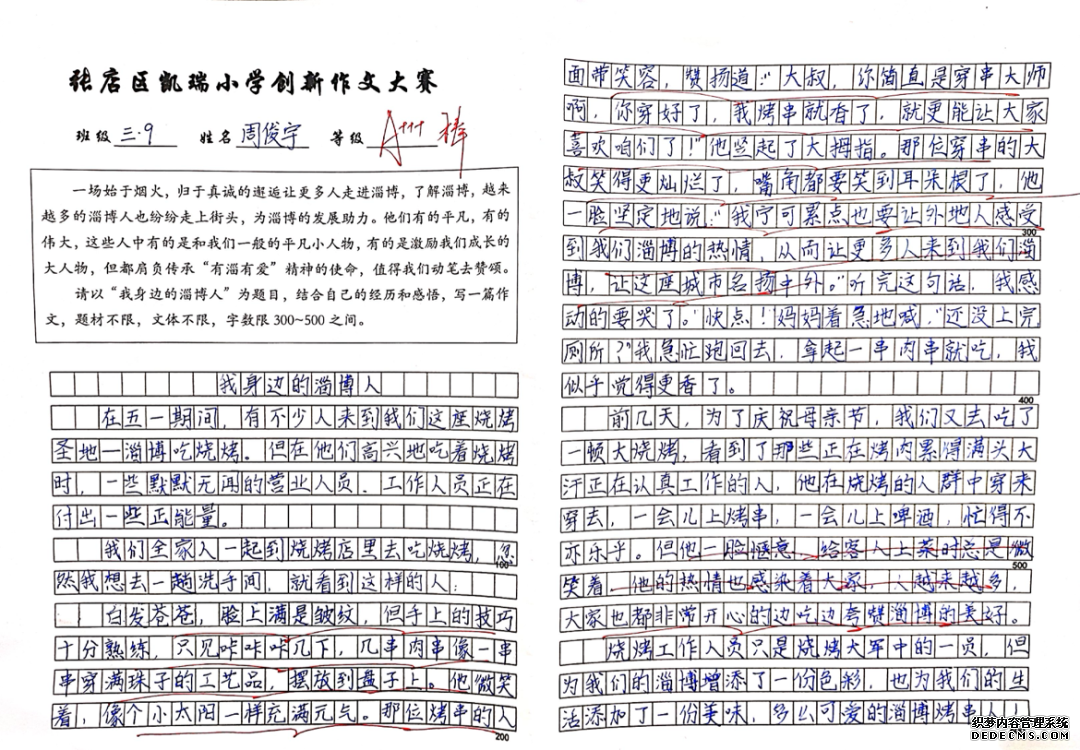 张店区凯瑞小学创新作文大赛
班级 三·9 姓名 周俊宇 等级 A+++ 棒
一场始于烟火，归于真诚的邂逅让更多人走进淄博，了解淄博，越来
越多的淄博人也纷纷走上街头，为淄博的发展助力。他们有的平凡，有的
伟大，这些人中有的是和我们一般的平凡小人物，有的是激励我们成长的
大人物，但都肩负传承“有淄有爱”精神的使命，值得我们动笔去赞颂。
请以“我身边的淄博人”为题目，结合自己的经历和感悟，写一篇作
文，题材不限，文体不限，字数限300~500之间。
我身边的淄博人
在五一期间，有不少人来到我们这座烧烤
圣地一淄博吃烧烤。但在他们高兴地吃着烧烤
时，一些默默无闻的营业人员、工作人员正在
付出一些正能量。
我们全家人一起到烧烤店里去吃烧烤，忽
100
然我想去一趟洗手间，就看到这样的人：
白发苍苍，脸上满是皱纹，但手上的技巧
十分熟练，只见咔咔咔几下，几串肉串像一串
串穿满珠子的工艺品，摆放到盘子上。他微笑
着，像个小太阳一样充满元气。那位烤串的人
200
面带笑容，赞扬道：“大叔，你简直是穿串大师
啊，你穿好了，我烤串就香了，就更能让大家
喜欢咱们了！”他竖起了大拇指。那位穿串的大
叔笑得更灿烂了，嘴角都要笑到耳朱根了，他
一脸坚定地说：“我宁可累点也要让外地人感受
300
到我们淄博的热情，从而让更多人来到我们淄
博，让这座城市名扬中外。”听完这句话，我感
动的要哭了。“快点！妈妈着急地喊，“还没上完
厕所？”我急忙跑回去，拿起一串肉串就吃，我
似乎觉得更香了。
400
前几天，为了庆祝母亲节，我们又去吃了
一顿大烧烤，看到了那些正在烤肉累得满头大
汗正在认真工作的人，他在烧烤的人群中穿来
穿去，一会儿上烤串，一会儿上啤酒，忙得不
亦乐乎。但他一脸惬意，给客人上菜时总是微
500
笑着，他的热情也感染着大家，越来越多，
大家也都非常开心的边吃边夸赞淄博的美好。
烧烤工作人员只是烧烤大军中的一员，但
为我们的淄博增添了一份色彩，也为我们的生
活添加了一份美味，多么可爱的淄博烤串人！
织梦内容管理系统
DEDECMS.COM